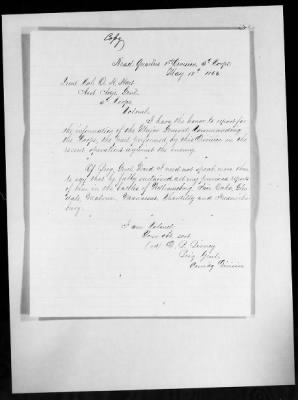 Copy
Head Quarters 1st Division, 3d Corps
May 15th 1863
Lieut Col. O. H. Hart
Asst Adjt Genl.
3d Corps
Colonel
I have the honor to report for
the information of the Major General Commanding
the Corps, the part performed by this Division in the
recent operations against the enemy.
Of Brig. Genl Ward I need not speak more than
to say that he fully sustained all my previous reports
of him in the battles of Williamsburg, Fair Oaks, Glen
dale, Malvern, Manassas, Chantilly and Fredericks
burg.
I am Colonel
Your obt servt
D. B. Birney
Brig Genl.
Comdg Division